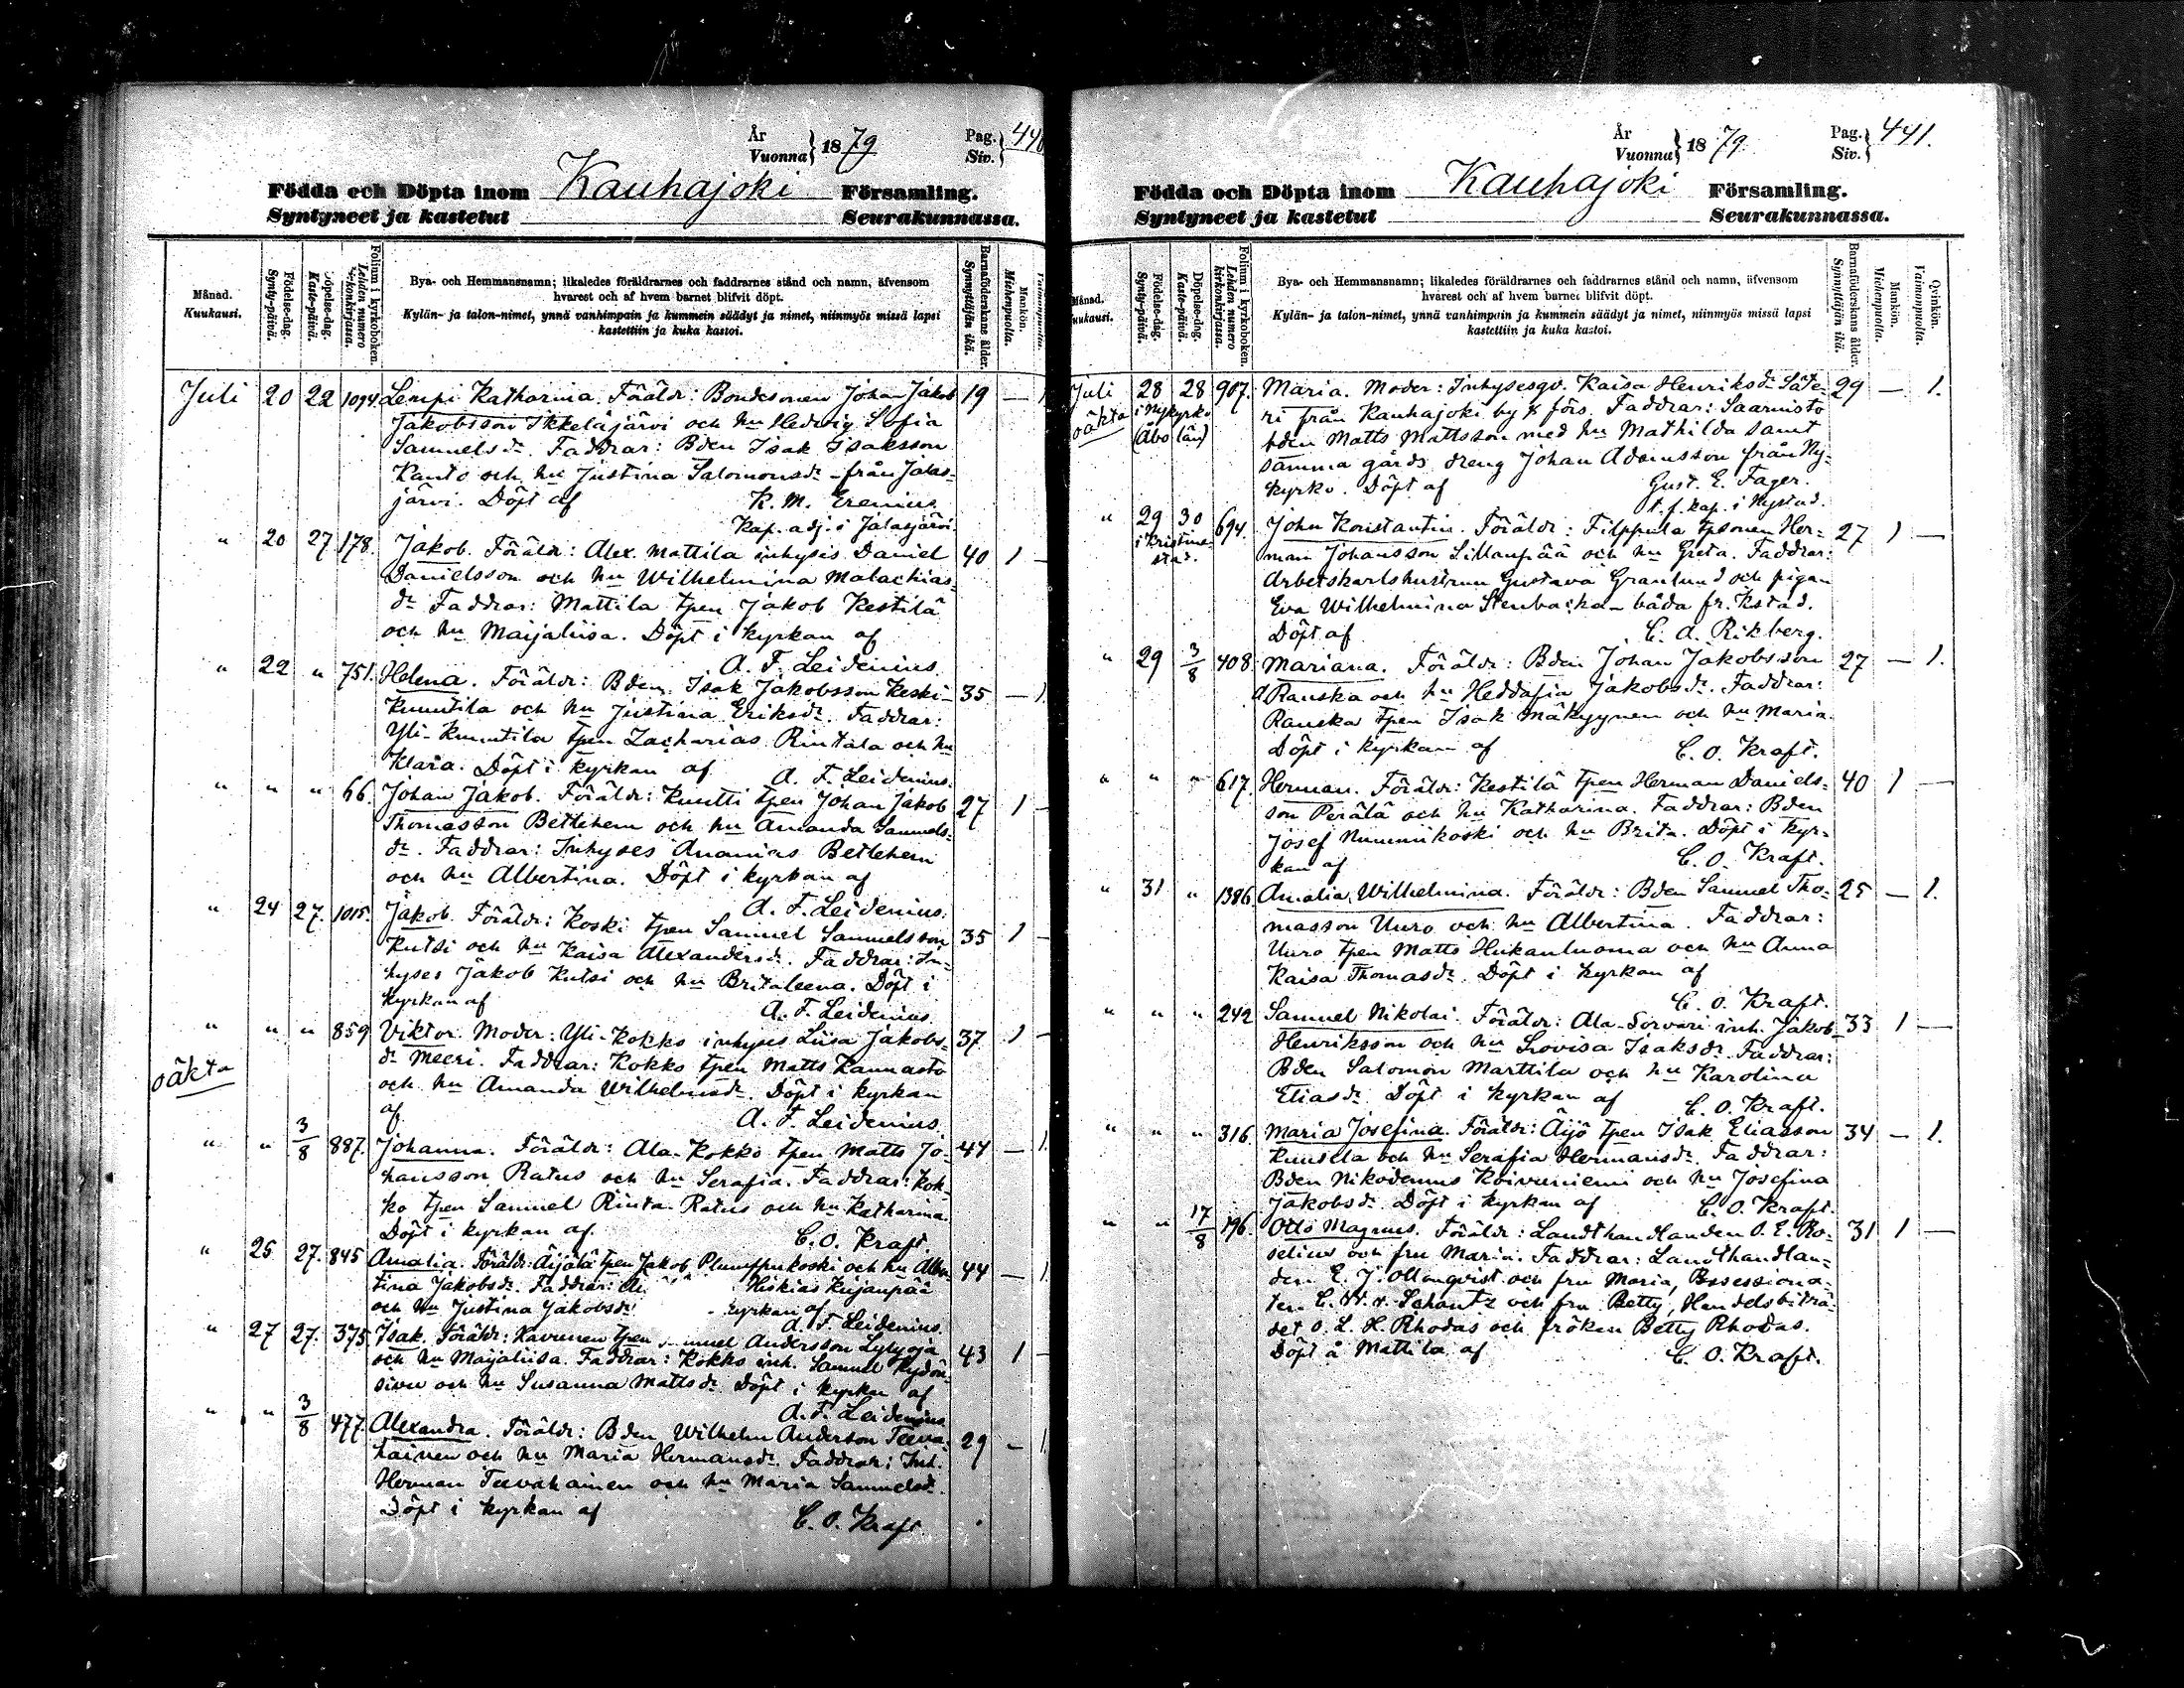 År
Vuonna} 1879
Pag.
Siv.} 440
Födda och Döpta inom Kauhajoki Församling.
Syntyneet ja kastetut Seurakunnassa.
Månad.
Kuukausi.
Födelse-dag.
Synty-päivä.
Döpelse-dag.
Kaste-päivä.
Folium i kyrkoboken.
Lehden numero
kirkonkirjassa.
Bya- och Hemmansnamn; likaledes föräldrarnes och faddrarnes stånd och namn, äfvensom
hvarest och af hvem barnet blifvit döpt.
Kylän- ja talon-nimet, ynnä vanhimpain ja kummein säädyt ja nimet, niinmyös missä lapsi
kastettiin ja kuka kastoi.
Barnaföderskans ålder.
Synnyttäjän ikä.
Mankön.
Miehenpuolta.
Juli 20 22 1094. Lempi Katharina. Föräldr: Bondesonen Johan Jakob 19 — 1
Jakobsson Ikkeläjärvi och hu Hedvig Sofia
Samuelsdr. Faddrar: Bden Isak Isaksson
Kanto och hu Justina Salomonsdr - från Jalas-
järvi. Döpt af K. M. Erenius.
Kap. adj. i Jalasjärvi.
" 20 27 178. Jakob. Föräldr: Alex. Mattila inhyses Daniel 40 1 —
Danielsson och hu Wilhelmina Malachias-
dr Faddrar: Mattila tpen Jakob Kestilä
och hu Maijaliisa. Döpt i kyrkan af
A. F. Leidenius.
" 22 " 751. Helena. Föräldr: Bden Isak Jakobsson Keski- 35 — 1.
Knuutila och hu Justina Eriksdr. Faddrar:
Yli-Knuutila tpen Zacharias Rintala och hu
Klara. Döpt i kyrkan af A. F. Leidenius.
" " " 66. Johan Jakob. Föräldr: Knutti tpen Johan Jakob 27 1 —
Thomasson Betlehem och hu Amanda Samuels-
dr. Faddrar: Inhyses Ananias Betlehem
och hu Albertina. Döpt i kyrkan af
A. F. Leidenius.
" 24 27. 1015. Jakob. Föräldr: Koski tpen Samuel Samuelsson 35 1 —
Kutsi och hu Kaisa Alexandersdr. Faddrar: In-
hyses Jakob Kutsi och hu Britaleena. Döpt i
kyrkan af A. F. Leidenius.
" " " 859 Viktor. Moder: Yli-Kokko inhyses Liisa Jakobs- 37 1 —
oäkta
dr Meeri. Faddrar: Kokko tpen Matts Kannasto
och hu Amanda Wilhelmsdr. Döpt i kyrkan
af A. F. Leidenius.
" " 3/8 887. Johanna. Föräldr: Ala-Kokko tpen Matts Jo- 47 — 1.
hansson Ratus och hu Serafia. Faddrar: Kok-
ko tpen Samuel Rinta-Ratus och hu Katharina.
Döpt i kyrkan af. C. O. Kraft.
" 25 27. 845 Amalia. Föräldr: Äijälä tpen Jakob Plumppukoski och hu Alber- 44 — 1.
tina Jakobsdr. Faddrar: Hiskias Kujanpää
och hu Justina Jakobsdr kyrkan af
A. F. Leidenius.
" 27 27. 375 Isak. Föräldr: Havunen tpen Andersson Lylyoja 43 1 —
och hu Maijaliisa. Faddrar: Kokko inh. Samuel Rydön-
sivu och hu Susanna Mattsdr Döpt i kyrkan af
A. F. Leidenius
" " 3/8 477. Alexandra. Föräldr: Bden Wilhelm Anderson Teeva- 29 — 1.
hainen och hu Maria Hermansdr. Faddrar: Inh.
Herman Teevahainen och hu Maria Samuelsdr.
Döpt i kyrkan af C. O. Kraft.
År
Vuonna} 1879
Pag.
Siv.} 441.
Födda och Döpta inom Kauhajoki Församling.
Syntyneet ja kastetut Seurakunnassa.
Månad.
Kuukausi.
Födelse-dag.
Synty-päivä.
Döpelse-dag.
Kaste-päivä.
Folium i kyrkoboken.
Lehden numero
kirkonkirjassa.
Bya- och Hemmansnamn; likaledes föräldrarnes och faddrarnes stånd och namn, äfvensom
hvarest och af hvem barnet blifvit döpt.
Kylän- ja talon-nimet, ynnä vanhimpain ja kummein säädyt ja nimet, niinmyös missä lapsi
kastettiin ja kuka kastoi.
Barnaföderskans ålder.
Synnyttäjän ikä.
Mankön.
Miehenpuolta.
Qvinkön.
Vaimonpuolta.
Juli 28 28 907. Maria. Moder: Inhysesqv. Kaisa Henriksdr Säte- 29 — 1.
oäkta i Nykyrko ri från Kauhajoki by & förs. Faddrar: Saarnisto
(Åbo län) bden Matts Mattsson med hu Mathilda samt
samma gårds dreng Johan Adamsson från Ny-
kyrko. Döpt af Gust. E. Fager.
t. f. kap. i Nystad.
" 29 30 694. John Konstantin. Föräldr: Filppula tpsonen Her- 27 1 —
i Kristine- man Johansson Sillanpää och hu Greta. Faddrar:
stad. Arbetskarlshustrun Gustava Granlund och pigan
Eva Wilhelmina Stenbacka - båda fr. Kstad.
Döpt af C. A. Rikberg.
" 29 3/8 408. Mariana. Föräldr: Bden Johan Jakobsson 27 — 1.
Ranska och hu Heddafia Jakobsdr. Faddrar:
Ranska tpen Isak Mäkyynen och hu Maria.
Döpt i kyrkan af C. O. Kraft.
" " " 617. Herman. Föräldr: Kestilä tpen Herman Daniels- 40 1 —
son Perälä och hu Katharina. Faddrar: Bden
Josef Nummikoski och hu Brita. Döpt i kyr-
kan af C. O. Kraft.
" 31 " 1386 Amalia Wilhelmina. Föräldr: Bden Samuel Tho- 25 — 1.
masson Uuro och hu Albertina. Faddrar:
Uuro tpen Matts Hukanluoma och hu Anna
Kaisa Thomasdr. Döpt i kyrkan af
C. O. Kraft.
" " " 242 Samuel Nikolai. Föräldr: Ala-Sorvari inh. Jakob 33 1 —
Henriksson och hu Lovisa Isaksdr. Faddrar:
Bden Salomon Marttila och hu Karolina
Eliasdr. Döpt i kyrkan af C. O. Kraft.
" " " 316. Maria Josefina. Föräldr: Äijö tpen Isak Eliasson 34 — 1.
Kuusela och hu Serafia Hermansdr. Faddrar:
Bden Nikodemus Koivuniemi och hu Josefina
Jakobsdr. Döpt i kyrkan af C. O. Kraft.
" " 17/8 196. Otto Magnus. Föräldr: Landthandlanden O. E. Ro- 31 1 —
selius och fru Maria. Faddrar: Landthandlan-
den E. J. Ollonqvist och fru Maria, Possessiona-
ten C. W. v. Schantz och fru Betty, Handelsbiträ-
det O. L. H. Rhodas och fröken Betty Rhodas.
Döpt å Mattila af C. O. Kraft.